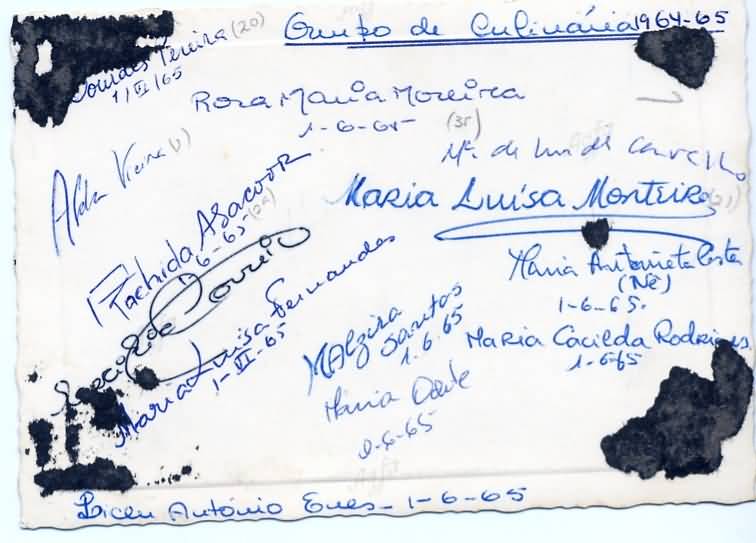 Grupo de Culinária 1964-65
Lourdes Pereira (20)
1/VI/65
Rosa Maria Moreira
1-6-65 (35)
Alda Vieira
Mª de Lurdes Carvalho
Maria Luísa Monteiro (21)
Rachida Asacoor
1-6-65
Correia
Maria Antonieta Costa
(Né)
1-6-65.
Maria Luisa Fernandes
1-VI-65
MAlzira Santos
1.6.65
Maria Cacilda Rodrigues
1-6-65
Maria Odete
1-6-65
Liceu António Enes - 1-6-65